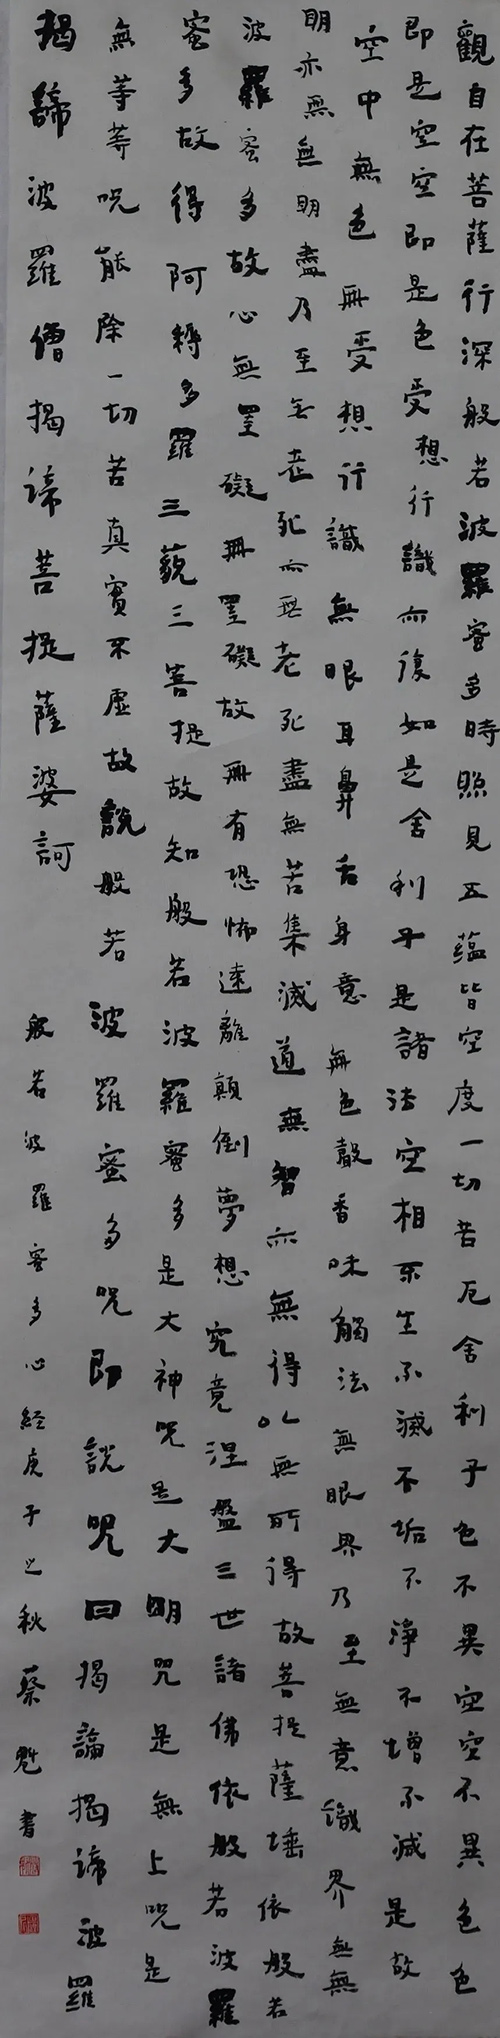 觀自在菩薩行深般若波羅蜜多時照見五蘊皆空度一切苦厄舍利子色不異空空不異色色
即是空空即是色受想行識而復如是舍利子是諸法空相不生不滅不垢不淨不增不減是故
空中無色無受想行識無眼耳鼻舌身意無色聲香味觸法無眼界乃至無意識界無無
明亦無無明盡乃至無老死而無老死盡無苦集滅道無智亦無得以無所得故菩提薩埵依般若
波羅蜜多故心無罣礙無罣礙故無有恐怖遠離顛倒夢想究竟涅盤三世諸佛依般若波羅
蜜多故得阿耨多羅三藐三菩提故知般若波羅蜜多是大神咒是大明咒是無上咒是
無等等咒能除一切苦真實不虛故說般若波羅蜜多咒即說咒曰揭諦揭諦波羅
揭諦波羅僧揭諦菩提薩婆訶
般若波羅密多心經庚子之秋蔡魁書